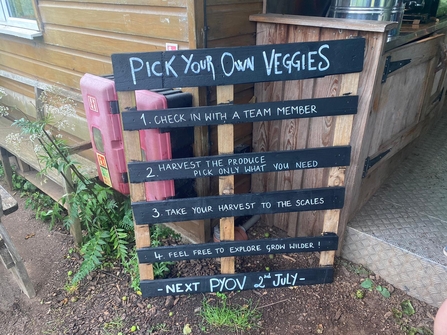 PICK YOUR OWN VEGGIES
1. CHECK IN WITH A TEAM MEMBER
2 HARVEST THE PRODUCE
PICK ONLY WHAT YOU NEED
3. TAKE YOUR HARVEST TO THE SCALES
4. FEEL FREE TO EXPLORE GROW WILDER!
- NEXT PYOV 2nd JULY -